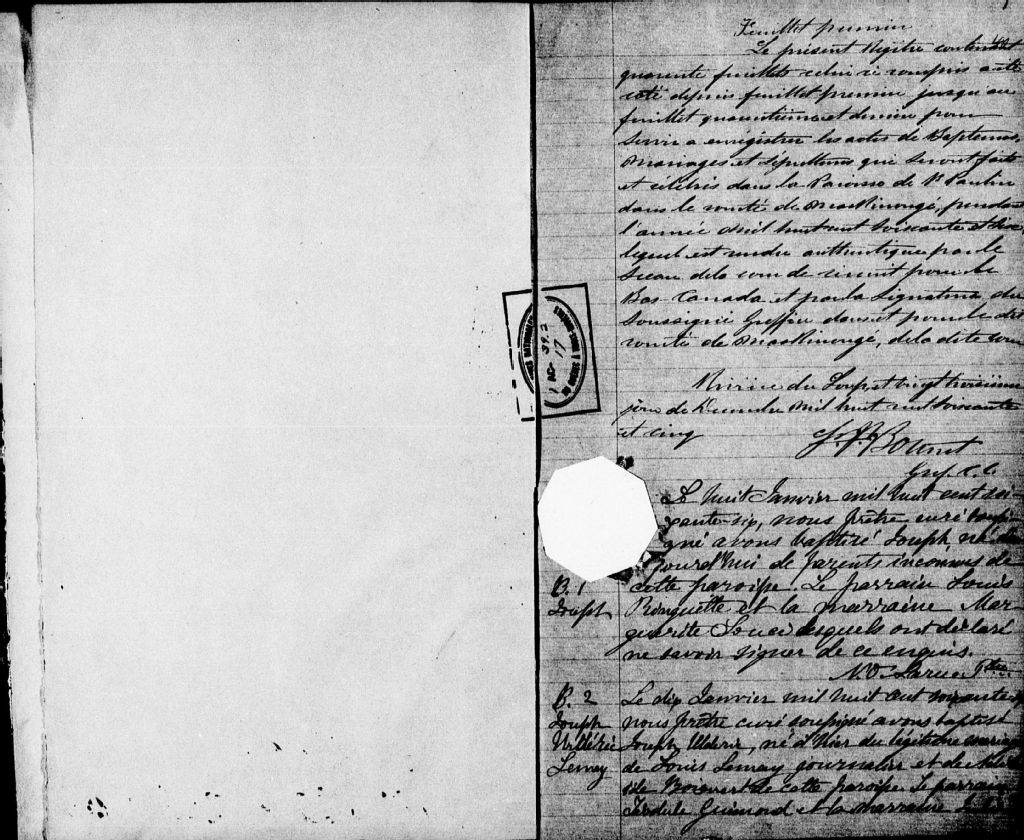 Feuillet premier
Le présent Régître contenant
quarente feuillets celui ci compris a été
coté depuis feuillet premier jusqu'au
feuillet quarentième et dernier pour
servir a enrégistrer les actes de Baptemes,
Mariages et sépultures qui seront faits
et célébrés dans la Paroisse de St Paulin
dans le comté de Maskinongé, pendant
l'année mil huit cent soixante et six
lequel est rendu authentique par le
Sceau de la cour de circuit pour le
Bas Canada et par la signature du
Soussigné Greffier dans et pour le dit
comté de Maskinongé, de la dite cour
Rivière du Loup, et vingt troisième
jour de Décembre mil huit cent soixante
et cinq
Gref. C. C.
Le huit Janvier mil huit cent soi-
xante-six, nous prêtre curé soussi-
gné avons baptisé Joseph né
jourd'hui de parents inconnus de
B. 1 cette paroisse. Le parrain Louis
Joseph Rinquette et la marraine Mar-
guerite lesquels ont déclaré
ne savoir signer de ce enquis.
N. O. Larue Ptre
B. 2 Le dix Janvier mil huit cent soixante-
Joseph nous prêtre curé soussigné avons baptisé
Joseph Ulderic, né d'hier du légitime mariage
Lemay de Louis Lemay journalier et de
de cette paroisse Le parrain
Guimond et la marraine
ARCHIVES NATIONALES
39.2
17